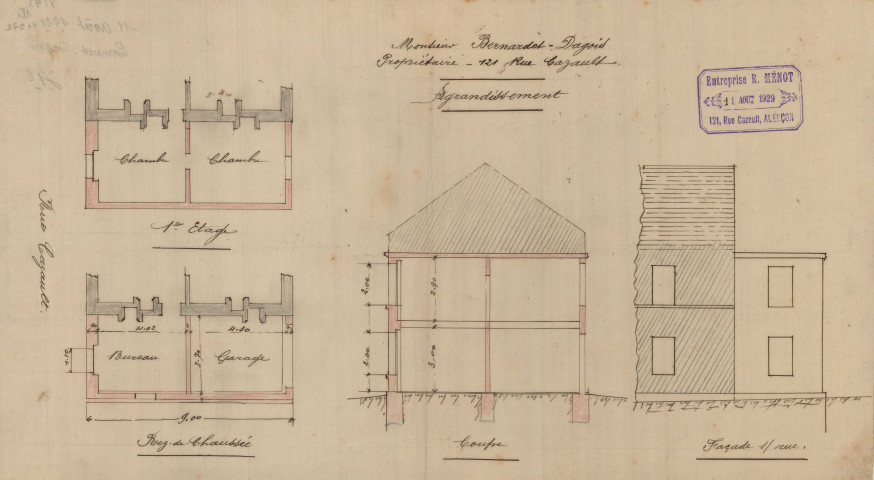 11 Août 1929
Monsieur Bernardet-Dagois
Propriétaire - 121 Rue Cazault.
Agrandissement
Entreprise R. MÉNOT
11 AOUT 1929
121, Rue Cazault, ALENÇON
Chambre
Chambre
1er Etage
Rue Cazault.
4.02
4.80
Bureau
Garage
3.70
1.50
9.00
Rez-de-Chaussée
2.00
2.90
2.00
3.00
Coupe
Façade s/ rue.